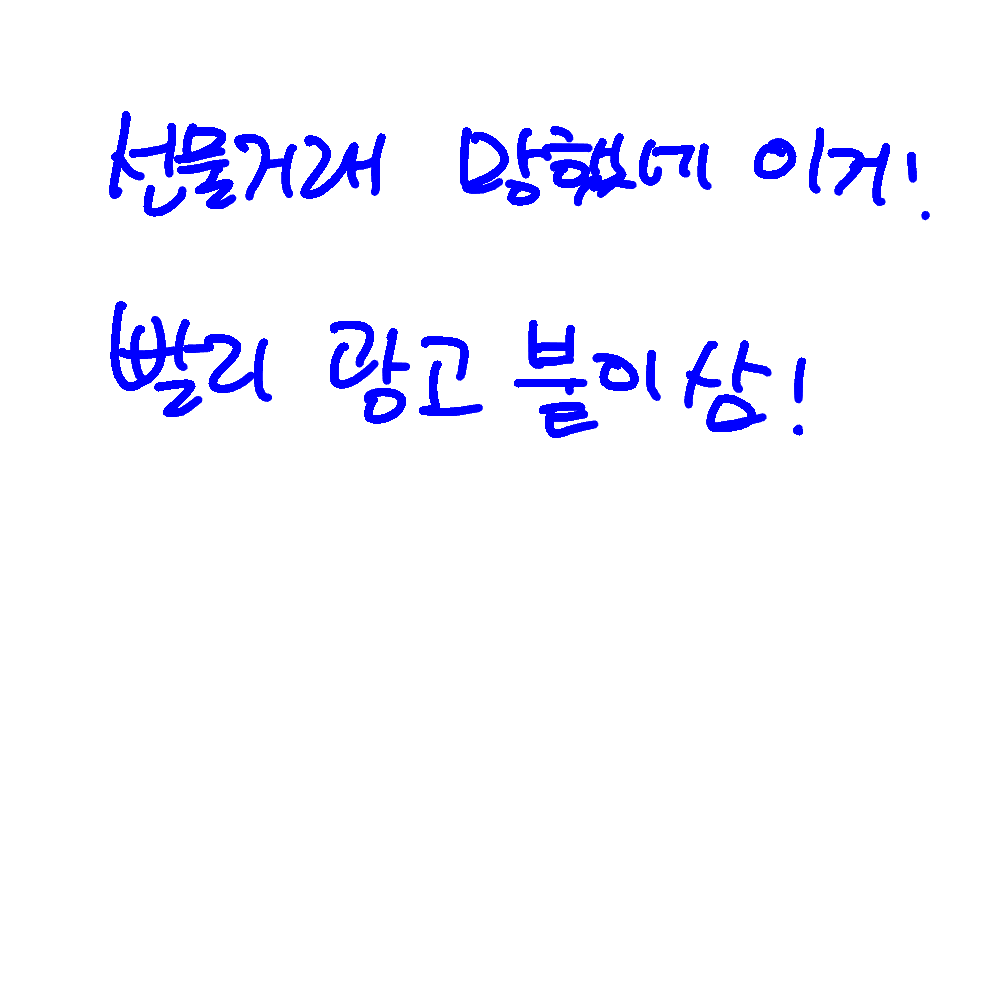 선물거래 망했네 이거!
빨리 광고 붙이삼!